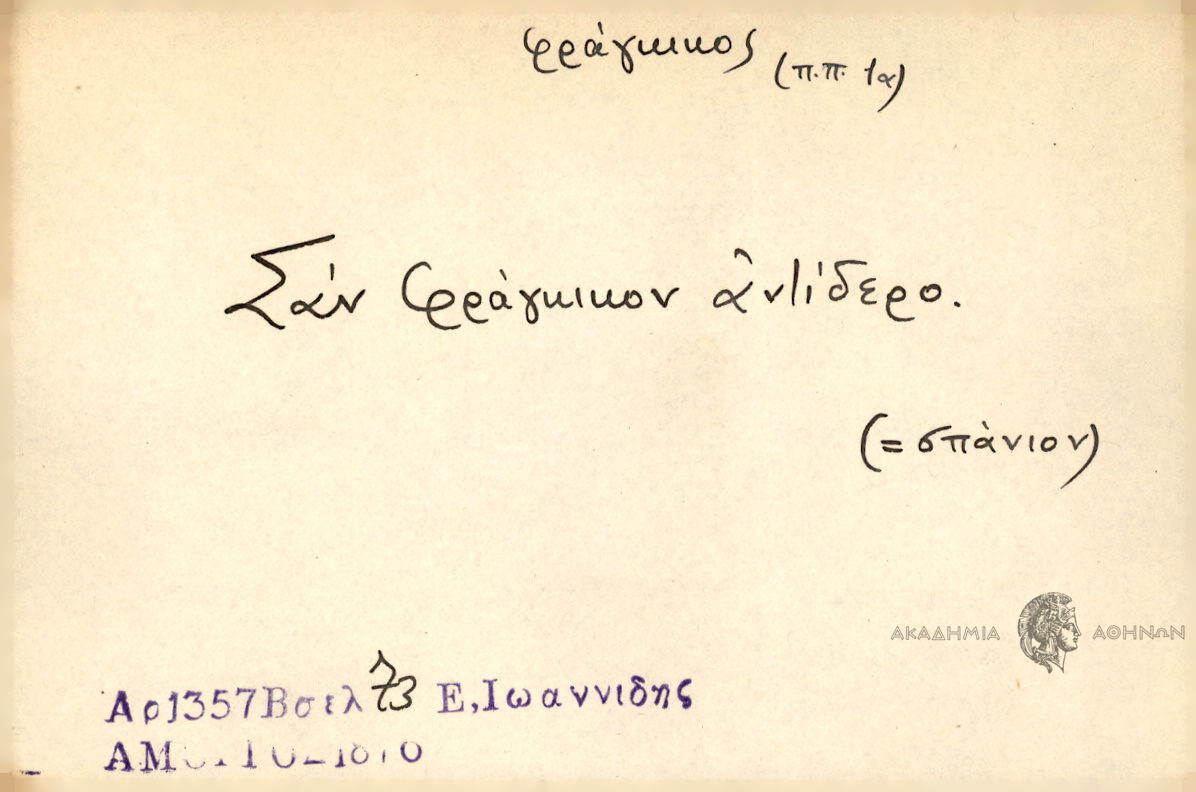 φράγκικος (π.π. 1α)
Σάν φράγκικον ἀντίδερο.
(= σπάνιον)
ΑΚΑΔΗΜΙΑ ΑΘΗΝΩΝ
Αρ1357Βσελ 73 Ε,Ιωαννιδης
ΑΜ